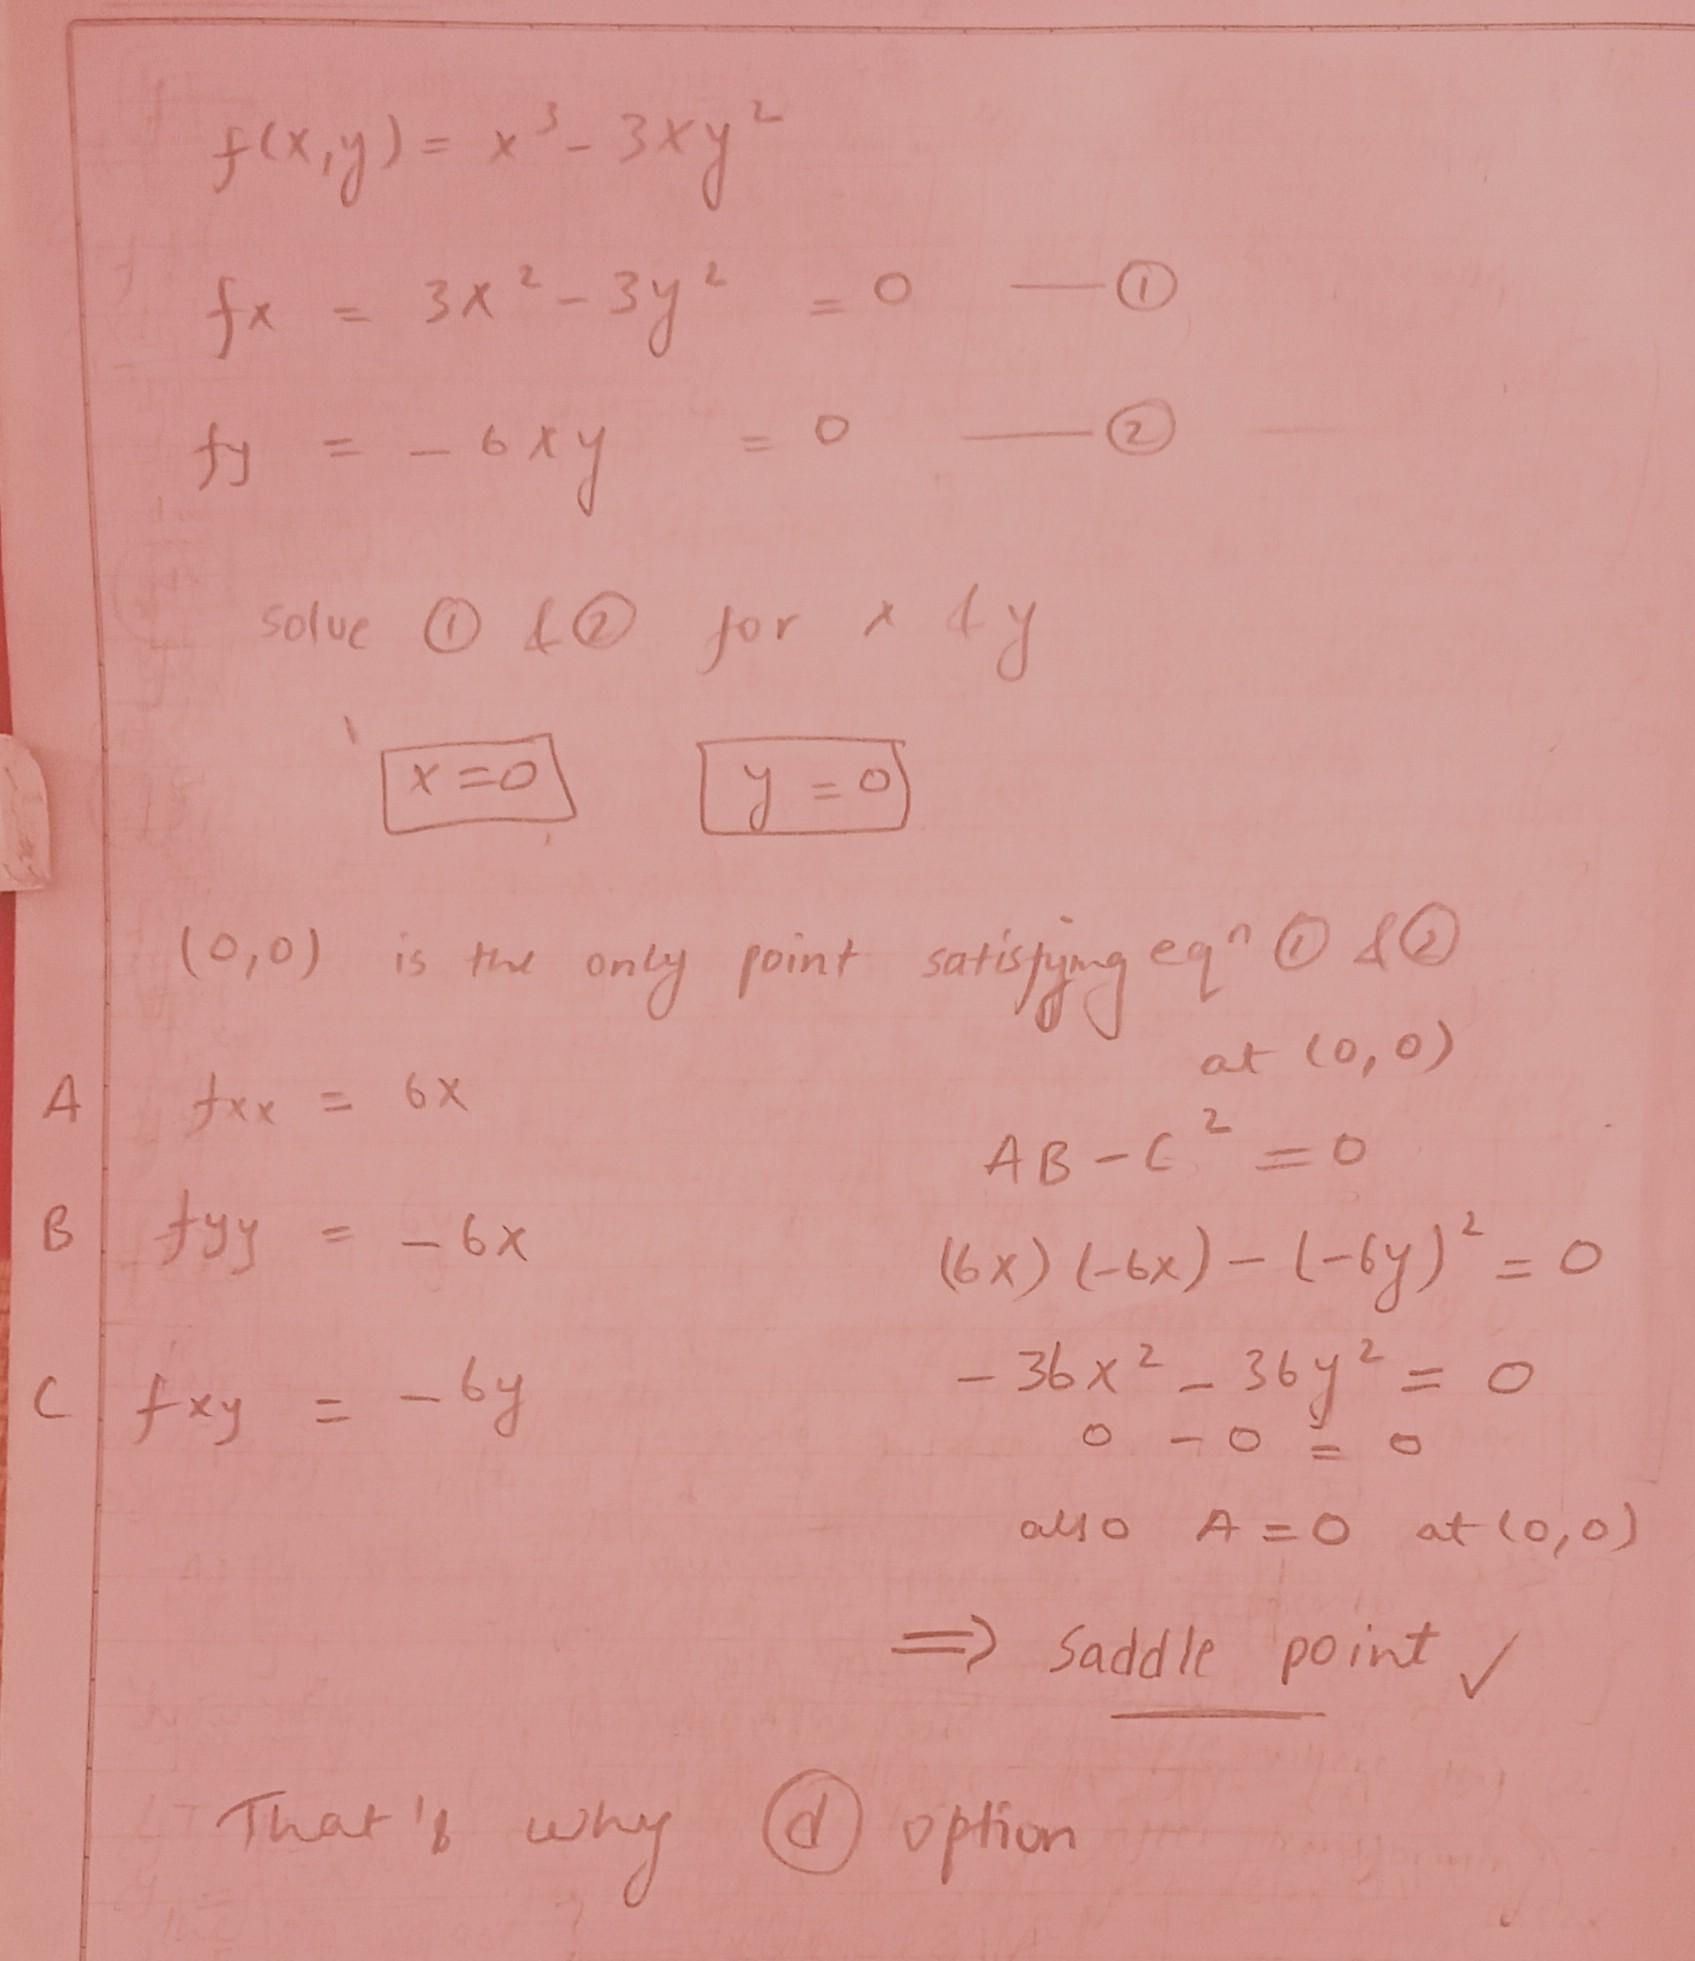 f(x,y) = x³ - 3xy²
fx = 3x² - 3y² = 0 — ①
fy = - 6xy = 0 — ②
solve ① & ② for x & y
x = 0 y = 0
(0,0) is the only point satisfying eqⁿ ① & ②
at (0,0)
A fxx = 6x
AB - C² = 0
B fyy = - 6x
(6x) (-6x) - (-6y)² = 0
- 36x² - 36y² = 0
C fxy = - 6y
0 - 0 = 0
also A = 0 at (0,0)
⇒ Saddle point ✓
That's why ⓓ option